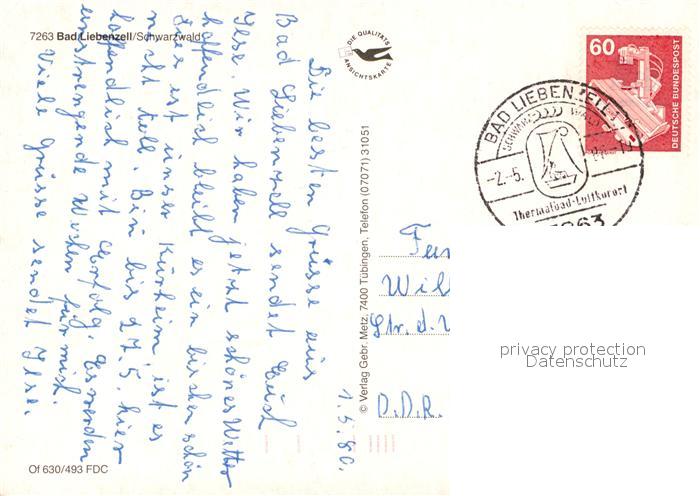 7263 Bad Liebenzell/Schwarzwald
DIE QUALITÄTS
ANSICHTSKARTE
60
DEUTSCHE BUNDESPOST
BAD LIEBENZELL
SCHWARZWALD
-2.-5.
Thermalbad-Luftkurort
7263
1.5.80.
Die besten Grüsse aus
Bad Liebenzell sendet Euch
Ilse. Wir haben jetzt schönes Wetter
hoffendlich bleibt es ein bischen schön
Hier ist unser Kurheim, ist es
nicht toll. Bin bis 27.5. hier
hoffendlich mit Erfolg. Es werden
anstrengende Wochen für mich.
Viele Grüsse sendet Ilse.
© Verlag Gebr. Metz, 7400 Tübingen, Telefon (07071) 31051
Fam
Will
Str. d.
D.D.R.
privacy protection
Datenschutz
Of 630/493 FDC